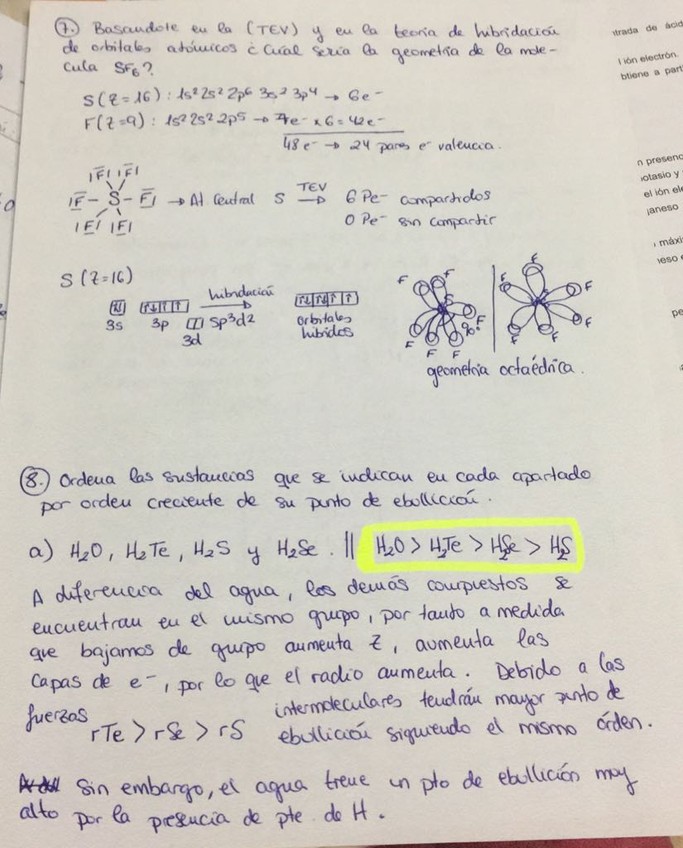 7. Basandote en la (TEV) y en la teoría de hibridación
de orbitales atómicos ¿Cuál sería la geometría de la molé-
cula SF₆?
S(Z=16): 1s² 2s² 2p⁶ 3s² 3p⁴ → 6e⁻
F(Z=9): 1s² 2s² 2p⁵ → 7e⁻ x 6 = 42e⁻
48 e⁻ → 24 pares e⁻ valencia.
F F
F - S - F → At Central S TEV → 6 Pe⁻ compartidos
F F
0 Pe⁻ sin compartir
S (Z=16)
hibridación
3s 3p sp³d² orbitales
3d híbridos
F F F F F F 90°
F F F F F F
geometría octaédrica.
8. Ordena las sustancias que se indican en cada apartado
por orden creciente de su punto de ebullición.
a) H₂O, H₂Te, H₂S y H₂Se. || H₂O > H₂Te > H₂Se > H₂S
A diferencia del agua, los demás compuestos se
encuentran en el mismo grupo, por tanto a medida
que bajamos de grupo aumenta Z, aumenta las
capas de e⁻, por lo que el radio aumenta. Debido a las
fuerzas intermoleculares tendrán mayor punto de
rTe > rSe > rS ebullición siguiendo el mismo órden.
Sin embargo, el agua tiene un pto de ebullición muy
alto por la presencia de pte. de H.
trada de ácid
l ión electrón.
btiene a part
n presenc
otasio y
el ión ele
janeso
máxi
ieso
pe